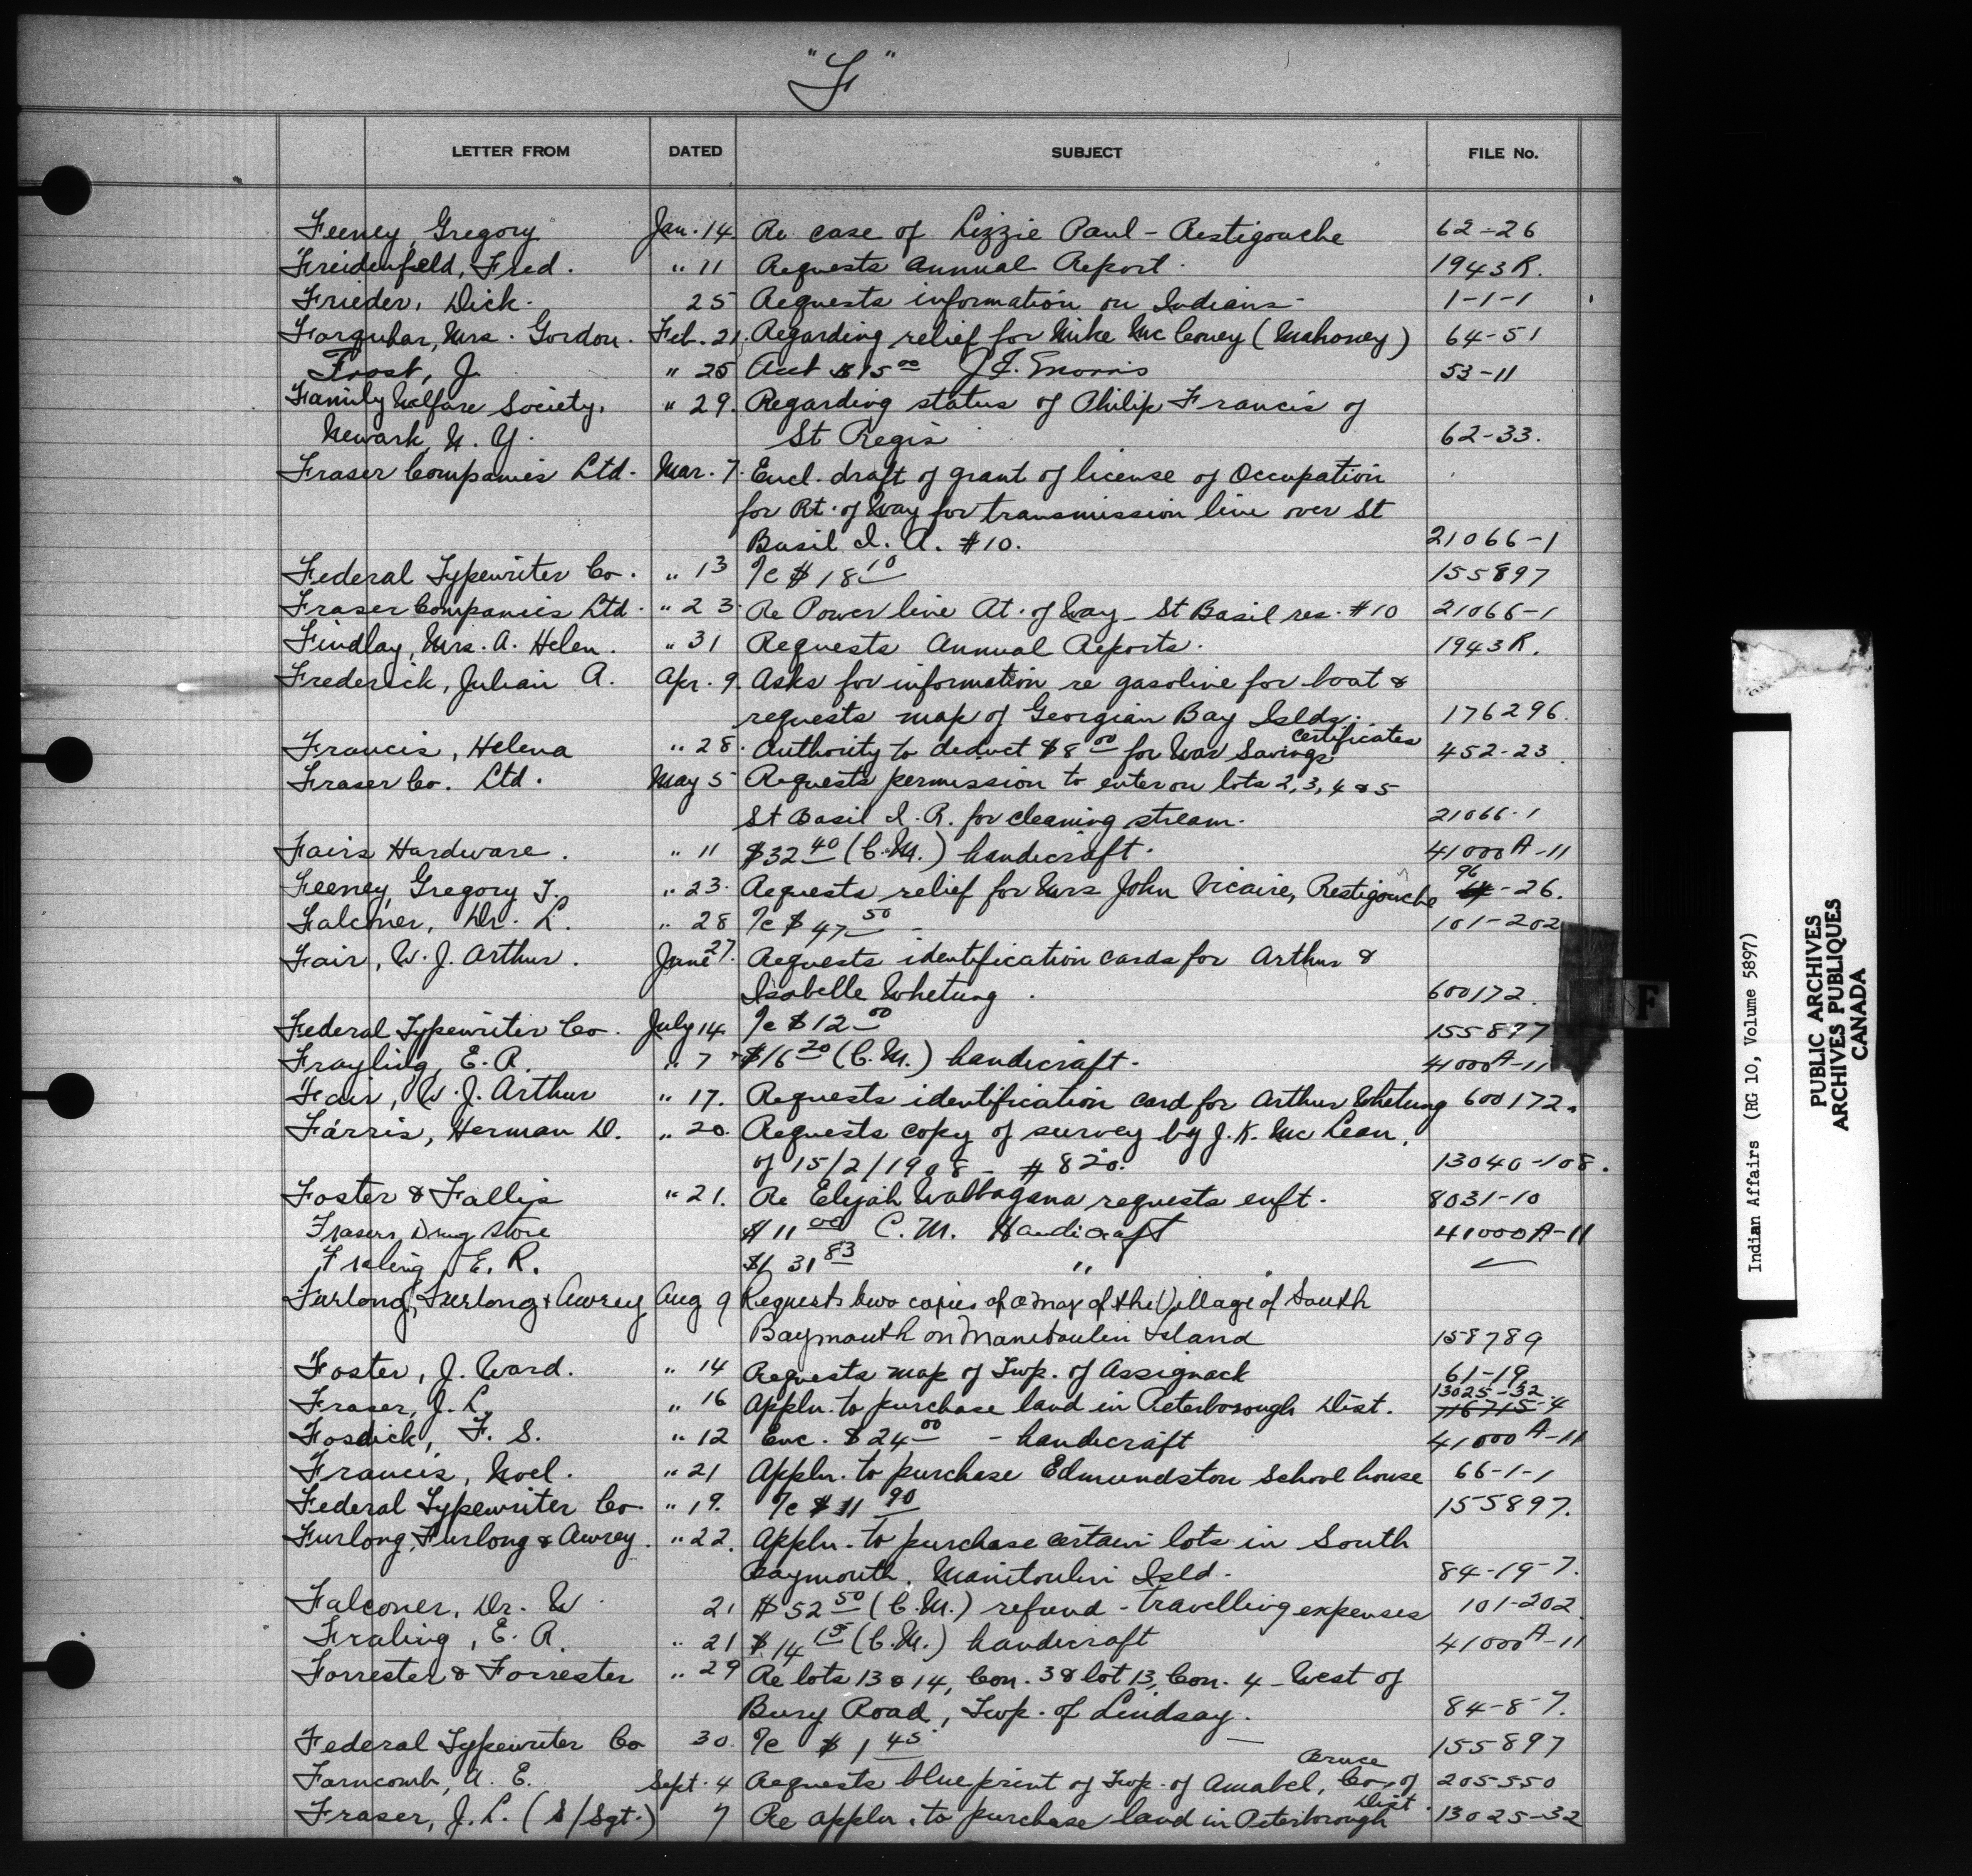 "F"
LETTER FROM DATED SUBJECT FILE No.
Feeney, Gregory Jan. 14. Re case of Lizzie Paul - Restigouche 62-26
Freidenfeld, Fred. " 11 Requests Annual Report. 1943R.
Frieder, Dick. 25 Requests information on Indians- 1-1-1
Farquhar, Mrs. Gordon. Feb. 21. Regarding relief for Mike McConey (Mahoney) 64-51
Frost, J. " 25 Acct $15 00 J.F. Morris 53-11
Family Welfare Society, " 29. Regarding status of Philip Francis of
Newark, N.Y. St Regis 62-33.
Fraser Companies Ltd. Mar. 7. Encl. draft of grant of license of Occupation
for Rt. of Way for transmission line over St
Basil I. R. #10. 21066-1
Federal Typewriter Co. " 13 %c $18 10 155897
Fraser Companies Ltd. " 23. Re Power line Rt. of Way - St Basil res. #10 21066-1
Findlay, Mrs. A. Helen. " 31 Requests Annual Reports. 1943R.
Frederick, Julian A. Apr. 9. Asks for information re gasoline for boat &
requests map of Georgian Bay Islds. 176296.
Francis, Helena " 28. Authority to deduct $8 00 for War Savings Certificates 452-23.
Fraser Co. Ltd. May 5 Requests permission to enter on lots 2, 3, 4 & 5
St Basil I. R. for cleaning stream. 21066-1
Fairs Hardware. " 11 $32 40 (C.M.) handicraft. 41000A-11
Feeney, Gregory J. " 23. Requests relief for Mrs John Vicaire, Restigouche 96-26.
Falconer, Dr. L. " 28 %c $47 50 - 101-202
Fair, W. J. Arthur. June 27. Requests identification cards for Arthur &
Isabelle Whetung. 600172.
Federal Typewriter Co. July 14 %c $12 00 155897
Frayling, E. R. " 7 $16 20 (C.M.) handicraft. 41000A-11
Fair, W. J. Arthur " 17. Requests identification card for Arthur Whetung 600172.
Farris, Herman D. " 20. Requests copy of survey by J. K. McLean,
of 15/2/1908 - #820. 13040-108.
Foster & Fallis " 21. Re Elijah Wabbagana requests enft. 8031-10
Frasers Drug Store $11 00 C.M. Handicraft 41000A-11
Fraling E. R. $131 83 "
Furlong, Furlong & Awrey Aug 9 Requests two copies of a map of the Village of South
Baymouth on Manitoulin Island 158789
Foster, J. Ward. " 14 Requests map of Twp. of Assignack 61-19
Fraser, J. L. " 16 Appln. to purchase land in Peterborough Dist. 13025-32. 716715-4
Fosdick, F. S. " 12 Enc. $24 00 - handicraft 41000A-11
Francis, Noel. " 21 Appln. to purchase Edmundston School house 66-1-1
Federal Typewriter Co. " 19. %c $11 90 155897.
Furlong, Furlong & Awrey. " 22. Appln. to purchase certain lots in South
Baymouth, Manitoulin Isld. 84-19-7.
Falconer, Dr. W. 21 $52 50 (C.M.) refund - travelling expenses 101-202.
Fraling, E. R. " 21 $14 15 (C.M.) handicraft 41000A-11
Forrester & Forrester " 29 Re lots 13 & 14, Con. 3 & lot 13, Con. 4 - West of
Bury Road, Twp. of Lindsay. 84-8-7.
Federal Typewriter Co 30. %c $1 45 - 155897
Farncomb, A. E. Sept. 4 Requests blueprint of Twp. of Amabel, Co. of Bruce 205550
Fraser, J. L. (S/Sgt.) 7 Re appln. to purchase land in Peterborough Dist. 13025-32
F
Indian Affairs (RG 10, Volume 5897)
PUBLIC ARCHIVES
ARCHIVES PUBLIQUES
CANADA